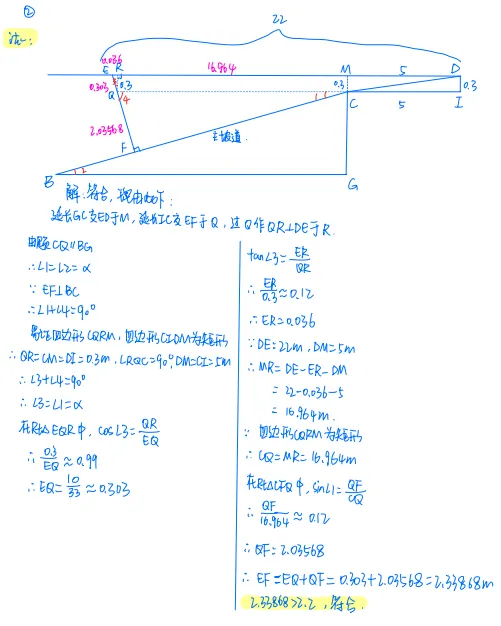 ②
法一:
22
0.036
E R 16.964 M 5 D
0.303 0.3 0.3 0.3
Q 4 1 C 5 I
2.03568
主坡道
F
B 2 G
解:符合,理由如下:
延长GC交ED于M,延长IC交EF于Q,过Q作QR⊥DE于R.
由题CQ∥BG
∴∠1=∠2=α
∵EF⊥BC
∴∠1+∠4=90°
易证四边形CQRM、四边形CIDM为矩形
∴QR=CM=DI=0.3m,∠RQC=90°,DM=CI=5m
∴∠3+∠4=90°
∴∠3=∠1=α
在Rt△EQR中,cos∠3=QR/EQ
∴0.3/EQ≈0.99
∴EQ=10/33≈0.303
tan∠3=ER/QR
∴ER/0.3≈0.12
∴ER=0.036
∵DE=22m,DM=5m
∴MR=DE-ER-DM
=22-0.036-5
=16.964m.
∵四边形CQRM为矩形
∴CQ=MR=16.964m
在Rt△CFQ中,sin∠1=QF/CQ
∴QF/16.964≈0.12
∴QF=2.03568
∴EF=EQ+QF=0.303+2.03568=2.33868m
2.33868>2.2,符合.